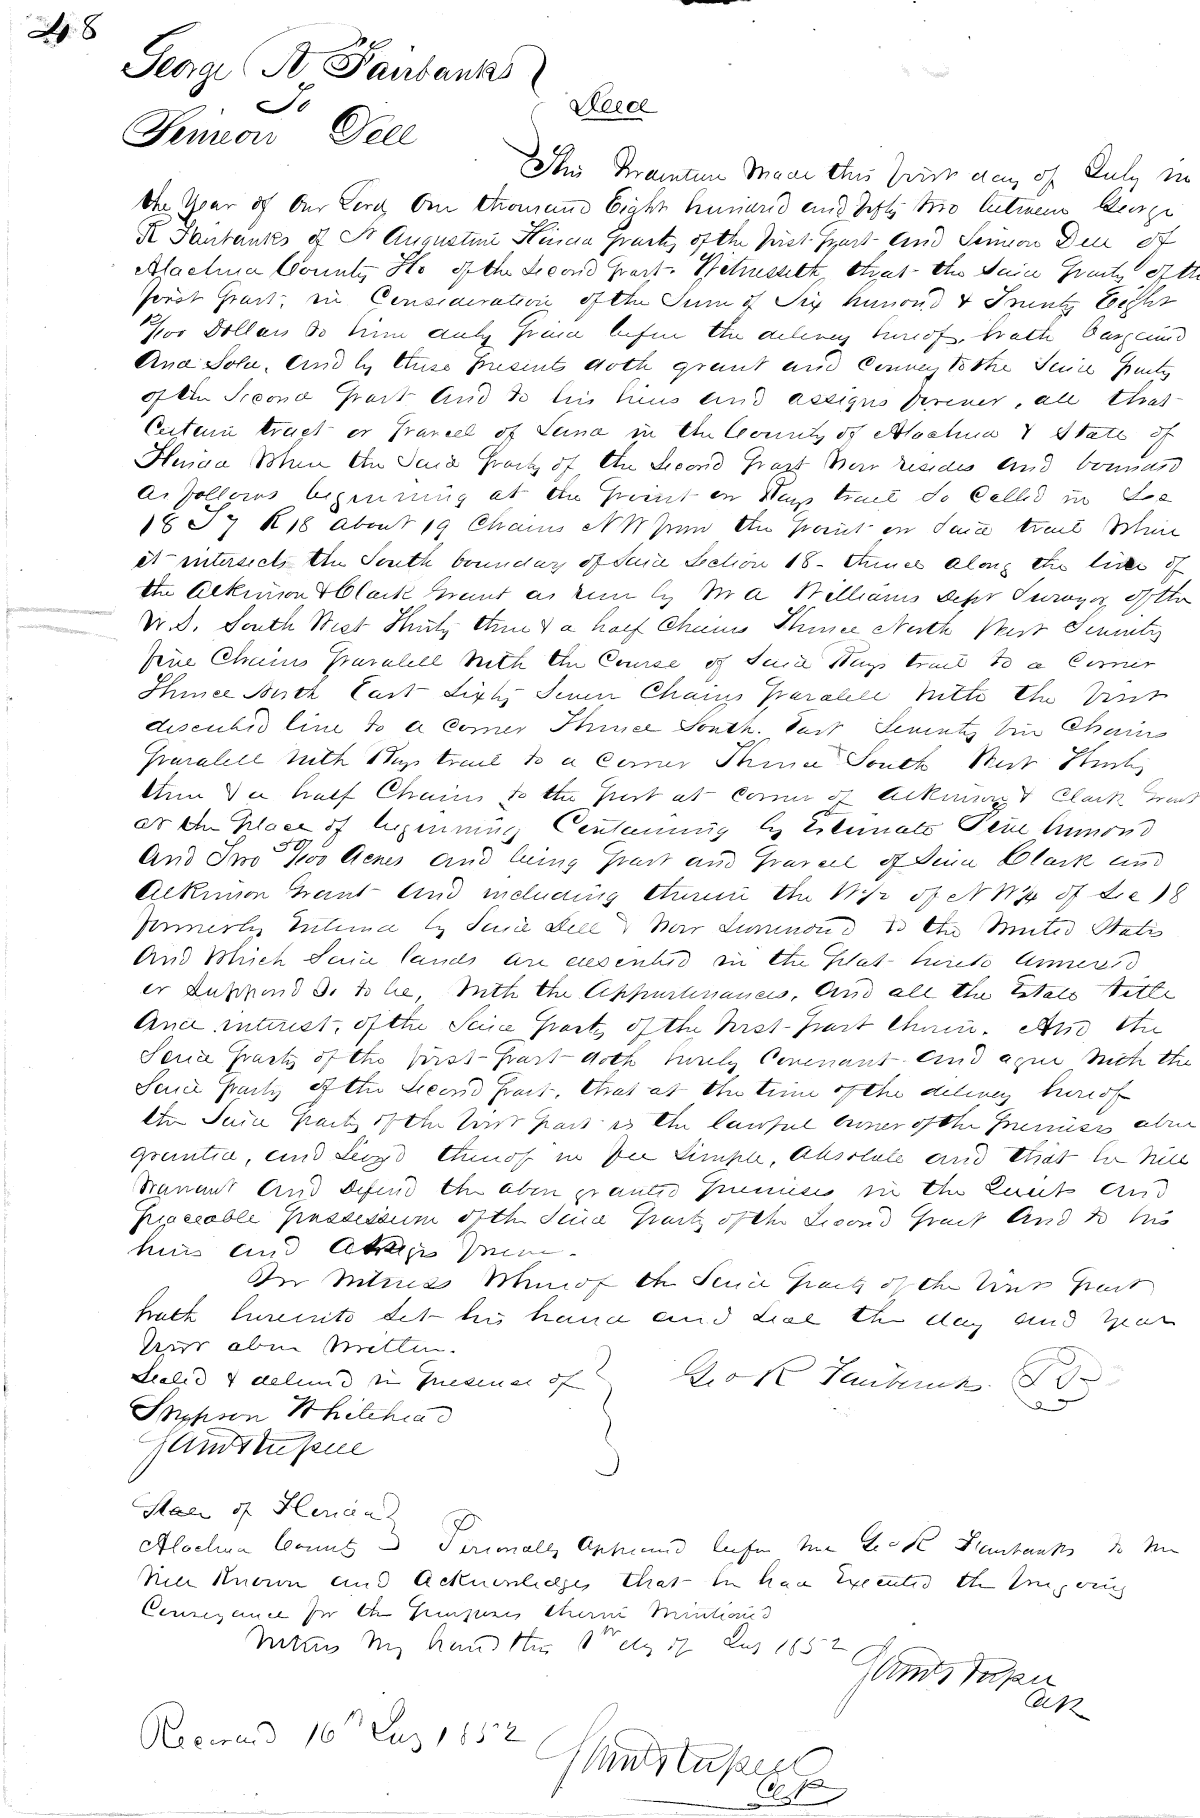 48
George R Fairbanks
To
Deed
Simeon Dell
This Indenture Made this first day of July in
the Year of Our Lord One thousand Eight hundred and fifty two between George
R Fairbanks of St Augustine Florida Party of the first Part and Simeon Dell of
Alachua County Flo of the Second Part. Witnesseth that the Said Party of the
first Part, in Consideration of the Sum of Six hundred & Twenty Eight
/100 Dollars to him duly paid before the delivery hereof, hath bargained
And Sold, and by these presents doth grant and convey to the Said Party
of the Second Part And to his heirs and assigns forever, all that
Certain tract or parcel of Land in the County of Alachua & State of
Florida Where the Said Party of the Second Part Now resides and bounded
As follows beginning at the Point on Rays trail So Called in Sec
18 T 7 R 18 about 19 Chains N W from the point on Said trail Where
it intersects the South boundary of Said Section 18 - thence along the line of
the Atkinson & Clark Grant as run by M A Williams Dept Surveyor of the
U.S. South West Thirty three & a half Chains Thence North West Seventy
five Chains Paralell with the Course of Said Rays trail to a Corner
Thence North East Sixty Seven Chains paralell with the first
described line to a corner Thence South East Seventy five Chains
Paralell with Rays trail to a Corner Thence South West Thirty
three & a half Chains to the post at corner of Atkinson & Clark Grant
at the Place of beginning Containing by Estimate Five hundred
And Two 50/100 Acres and being Part and Parcel of Said Clark and
Atkinson Grant And including therein the W 1/2 of N W 1/4 of Sec 18
formerly Entered by Said Dell & Now Surrendered to the United States
And Which Said lands are described in the Plat hereto annexed
or Supposed So to be, With the Appurtenances, And all the Estate title
And interest, of the Said Party of the first Part therein. And the
Said Party of the first Part doth hereby Covenant and agree with the
Said Party of the Second Part, that at the time of the delivery hereof
the Said Party of the first part is the lawful owner of the Premises above
granted, and Seized thereof in fee Simple, Absolute and that he will
Warrant And Defend the above granted Premises in the Quiet and
Peaceable Possession of the Said Party of the Second Part And to his
heirs and Assigns forever.
In Witness Whereof the Said Party of the first Part
hath hereunto Set his hand and Seal the day and Year
first above Written.
Sealed & delivered in Presence of
Geo R Fairbanks
Simpson Whitehead
State of Florida
Alachua County Personally Appeared before me Geo R Fairbanks to me
Well Known and Acknowledges that he had Executed the foregoing
Conveyance for the Purposes therein Mentioned
Witness My hand this day of July 1852
Clk
Received 16th July 1852
Clk